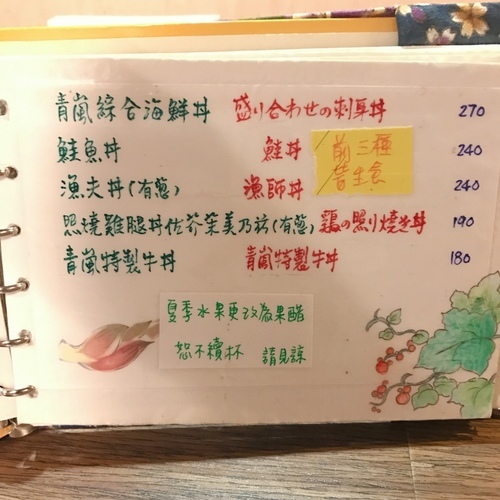 青嵐綜合海鮮丼 盛り合わせの刺身丼 270
鮭魚丼 鮭丼 240
前三種
皆生食
漁夫丼(有蔥) 漁師丼 240
照燒雞腿丼佐芥茉美乃滋(有蔥) 鶏の照り焼き丼 190
青嵐特製牛丼 青嵐特製牛丼 180
夏季水果更改為果醋
恕不續杯 請見諒